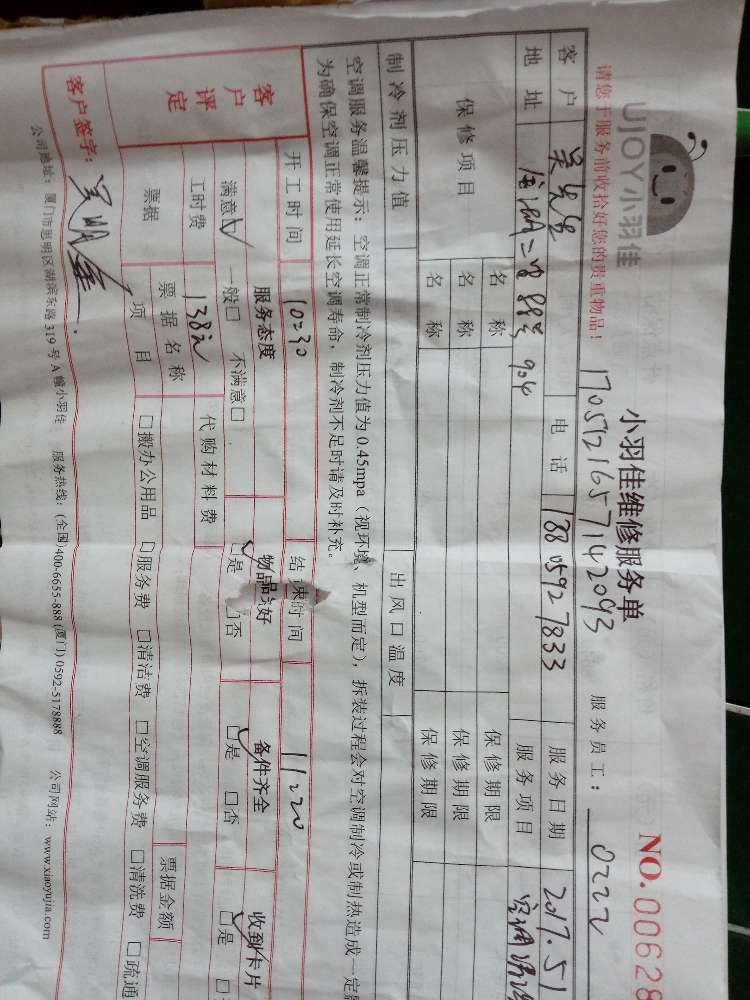 UJOY小羽佳
小羽佳维修服务单
NO.00628
请您于服务前收拾好您的贵重物品！
1705121657142093
服务员工：0222
客户 吴先生 电话 13805927833 服务日期 2017.51
地址 二里 904 服务项目 空调
保修项目 名称 保修期限
名称 保修期限
名称 保修期限
制冷剂压力值 出风口温度
空调服务温馨提示：空调正常制冷剂压力值为0.45mpa（视环境、机型而定），拆装过程会对空调制冷或制热造成一定
为确保空调正常使用延长空调寿命，制冷剂不足时请及时补充。
开工时间 10:30 结束时间 11:20
客户评定 服务态度 物品完好 备件齐全 收到卡片
满意☑ 一般□ 不满意□ ☑是 □否 ☑是 □否 ☑是
工时费 138元 代购材料费
票据 票据名称 票据金额
项目 □搬办公用品 □服务费 □清洁费 □空调服务费 □清洗费 □疏通
客户签字：吴明
公司地址：厦门市思明区湖滨东路319号A幢小羽佳 服务热线：(全国)400-6655-888 (厦门) 0592-5178888 公司网站：www.xiaoyujia.com